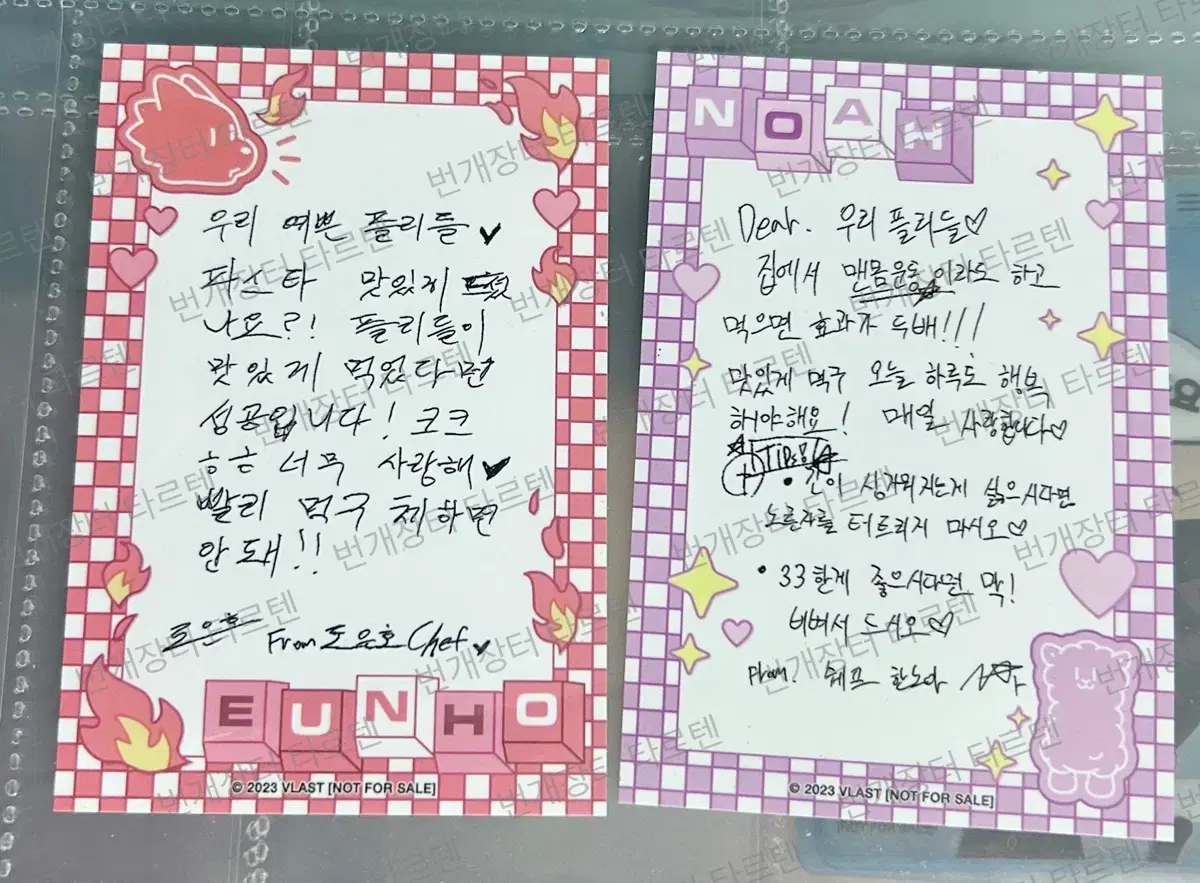 우리 예쁜 플리들
파스타 맛있게
나요?! 플리들이
맛있게 먹었다면
성공입니다! 크크
ㅎㅎ 너무 사랑해
빨리 먹구 체하면
안 돼!!
도은호 From 도은호 Chef
EUNHO
© 2023 VLAST [NOT FOR SALE]
NOAH
Dear. 우리 플리들♡
집에서 맨몸운동이라도 하고
먹으면 효과가 두배!!!
맛있게 먹구 오늘 하루도 행복
해야해요! 매일 사랑합니다♡
TIP
• 간이 싱거워지는게 싫으시다면
노른자를 터트리지 마시오♡
• 33한게 좋으시다면 막!
비벼서 드시오♡
From. 쉐프 한노아
© 2023 VLAST [NOT FOR SALE]
번개장터 타르텐